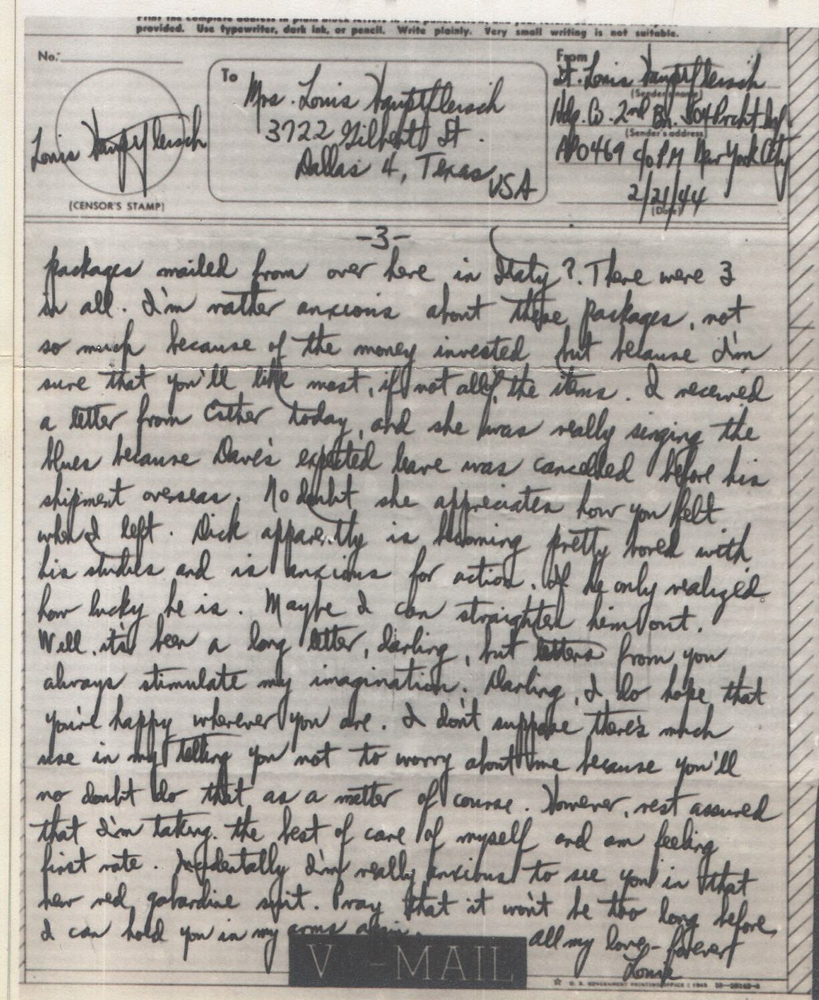 Print the complete address in plain block letters in the panel below, and your return address in the space
provided. Use typewriter, dark ink, or pencil. Write plainly. Very small writing is not suitable.
No.
To
From
Mrs. Louis Hauptfleisch
3722 Gilbert St.
Dallas 4, Texas
USA
Lt. Louis Hauptfleisch
(Sender's name)
Hdq. Co. 2nd Bn. 504 Prcht Inf
(Sender's address)
APO 469 c/o PM New York City
2/21/44
(Date)
Louis Hauptfleisch
(CENSOR'S STAMP)
-3-
packages mailed from over here in Italy?. There were 3
in all. I'm rather anxious about these packages, not
so much because of the money invested but because I'm
sure that you'll like most, if not all of the items. I received
a letter from Esther today, and she was really singing the
blues because Dave's expected leave was cancelled before his
shipment overseas. No doubt she appreciates how you felt
when I left. Dick apparently is becoming pretty bored with
his studies and is anxious for action. If he only realized
how lucky he is. Maybe I can straighten him out.
Well, it's been a long letter, darling, but letters from you
always stimulate my imagination. Darling, I do hope that
you're happy wherever you are. I don't suppose there's much
use in my telling you not to worry about me because you'll
no doubt do that as a matter of course. However, rest assured
that I'm taking the best of care of myself and am feeling
first rate. Incidentally I'm really anxious to see you in that
new red gabardine suit. Pray that it won't be too long before
I can hold you in my arms again.
all my love - forever
Louis
V-MAIL
U. S. GOVERNMENT PRINTING OFFICE : 1943